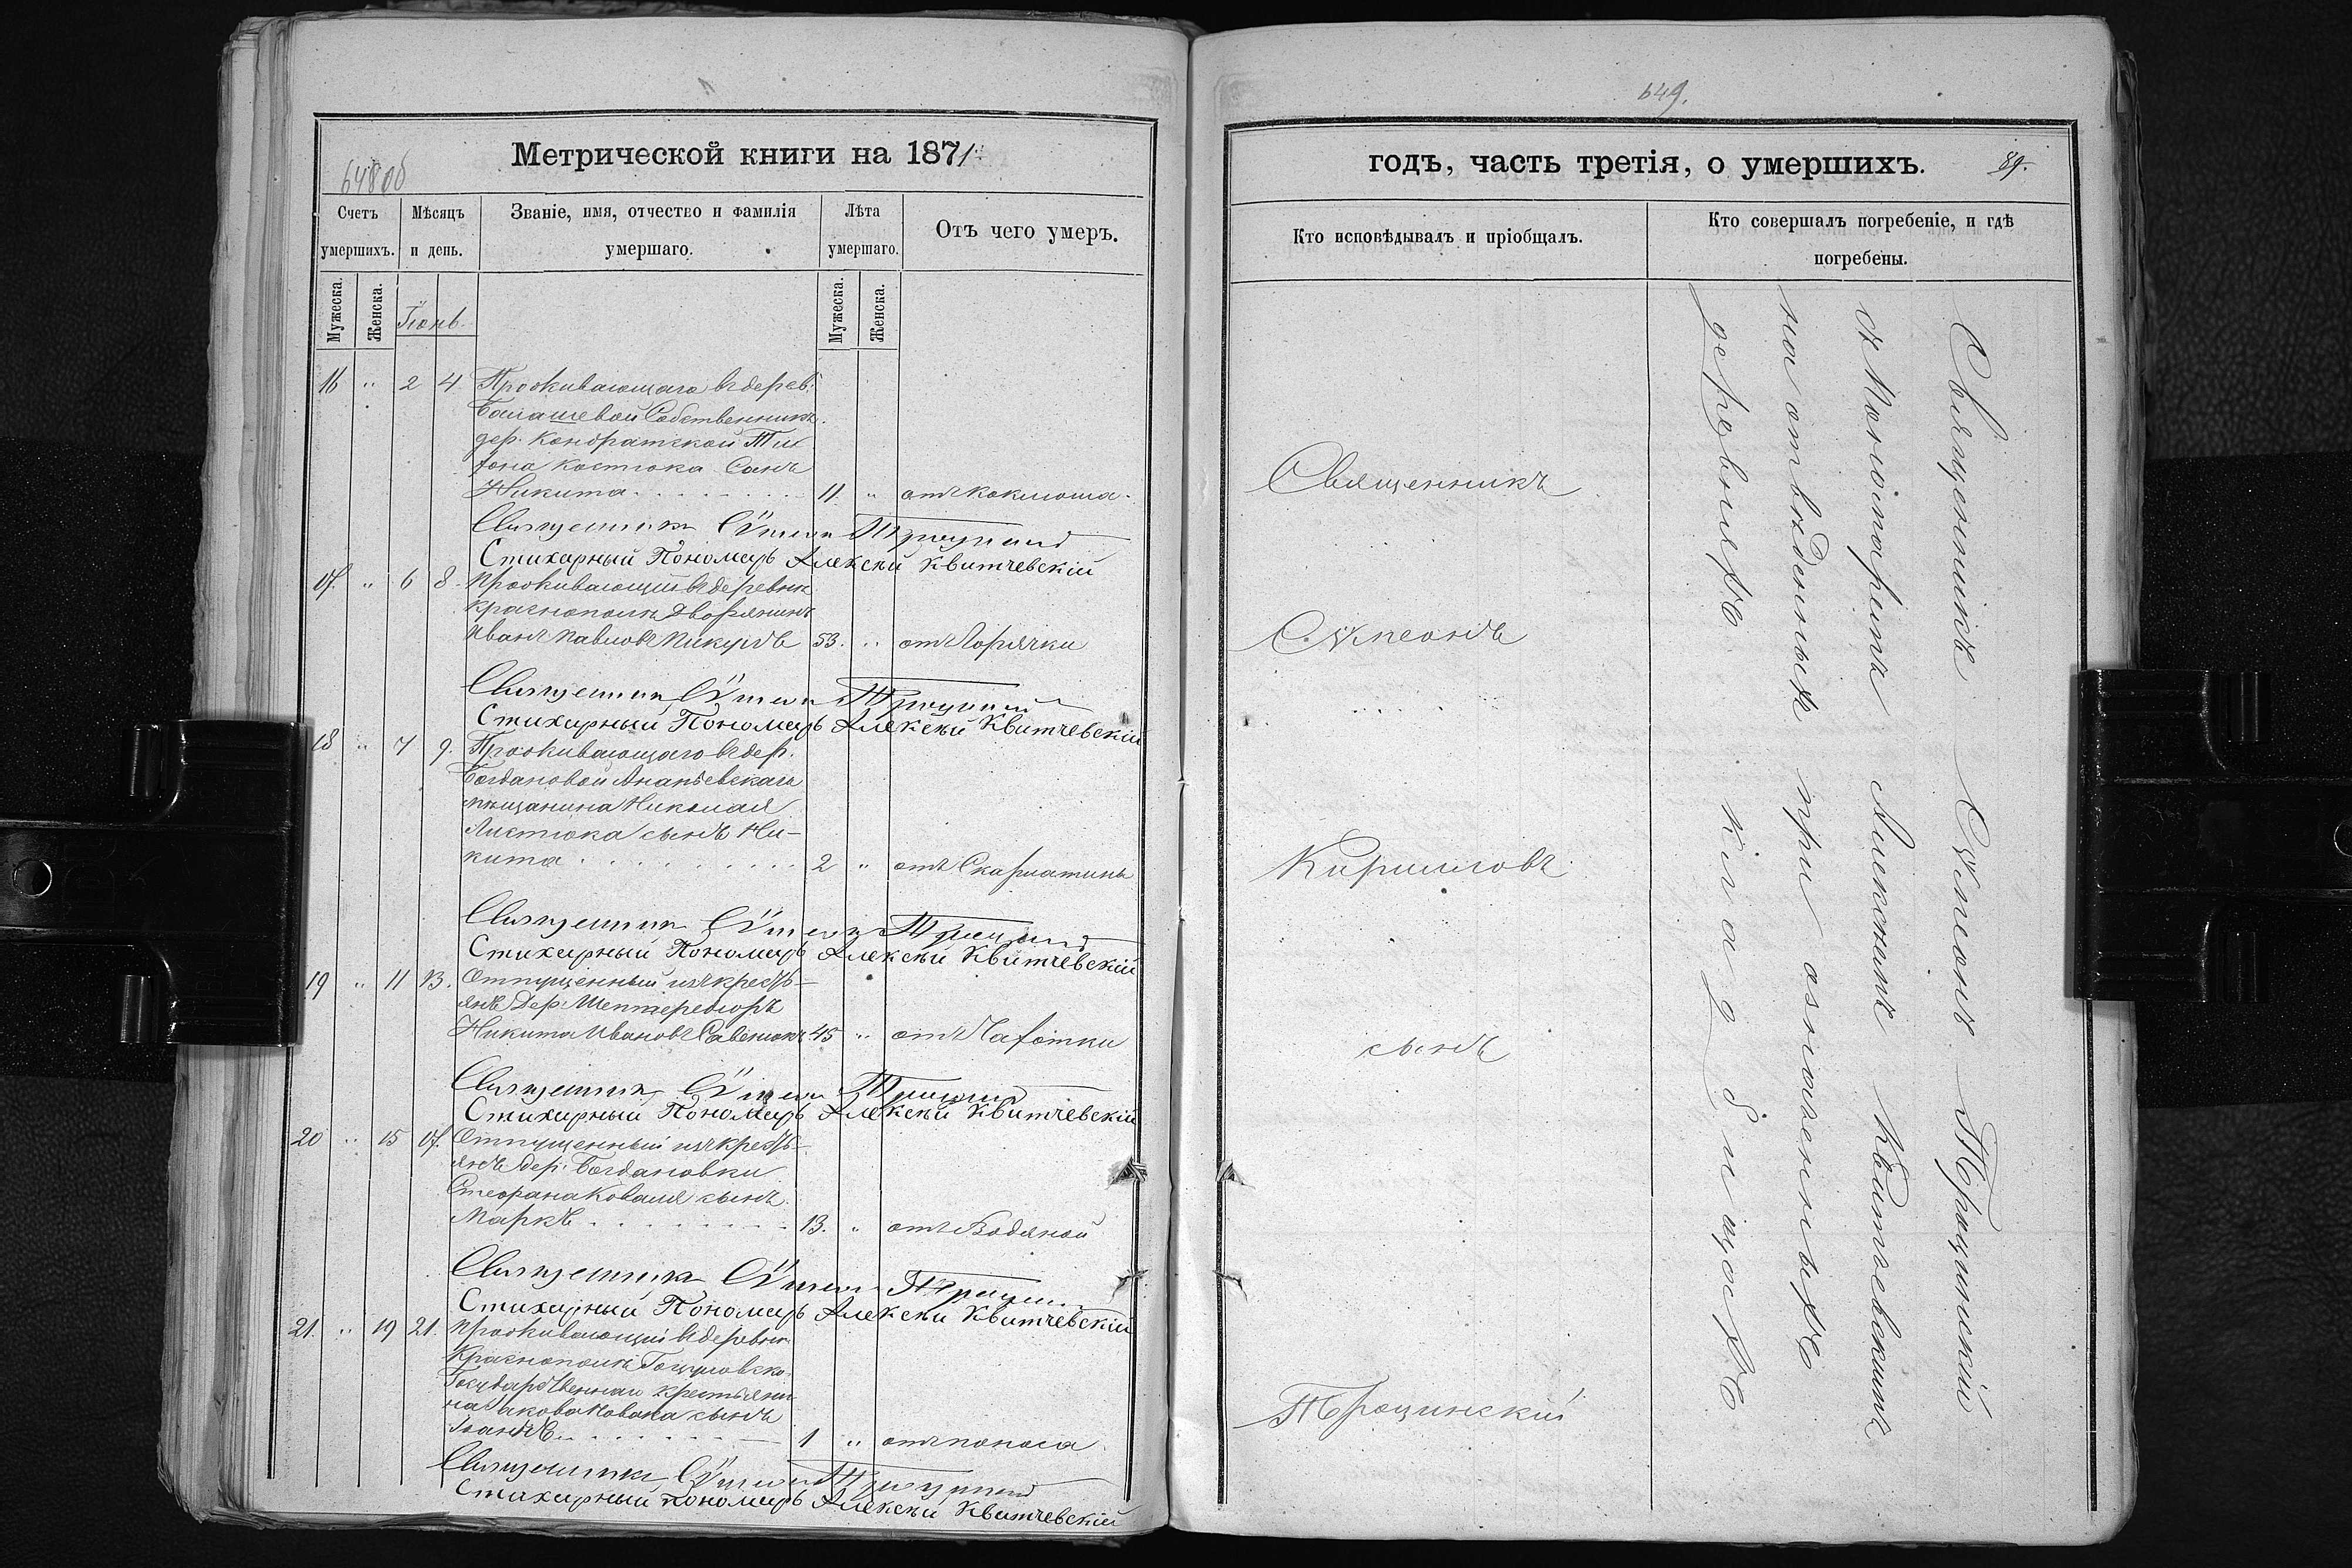 648об
Метрической книги на 1871:
Счетъ умершихъ.
Мѣсяцъ и день.
Званіе, имя, отчество и фамилія умершаго.
Лѣта умершаго.
Отъ чего умеръ.
Мужеска.
Женска.
Іюнь.
Мужеска.
Женска.
16 " 2 4 Проживающаго въ дерев:
Балашевой Собственника
дер. Кондратской Ти-
хона Костюка Сынъ
Никита 11. " отъ Коклюша.
Священникъ Сѵмеонъ Троцинскій
Стихарный Пономарь Алексѣй Квитчевскій
17. " 6 8. Проживающій въ деревнѣ
Краснополѣ Дворянинъ
Иванъ Павловъ Пикулъ 53. " отъ Горячки
Священникъ Сѵмеонъ Троцинскій
Стихарный Пономарь Алексѣй Квитчевскій
18 " 7 9. Проживающаго въ дер.
Богдановой Ананьевскаго
мѣщанина Николая
Листюка сынъ Ни-
кита 2 " отъ Скарлатины
Священникъ Сѵмеонъ Троцинскій
Стихарный Пономарь Алексѣй Квитчевскій
19 " 11 13. Отпущенный изъ крестъ-
янъ Дер:
Никита Ивановъ Савенюкъ 45 " отъ Чахотки
Священникъ Сѵмеонъ Троцинскій
Стихарный Пономарь Алексѣй Квитчевскій
20 " 15 17. Отпущенный изъ крестъ-
янъ дер. Богдановки
Стефана Коваля сынъ
Маркъ 13. " отъ Водяной
Священникъ Сѵмеонъ Троцинскій
Стихарный Пономарь Алексѣй Квитчевскій
21. " 19 21. Проживающій въ деревнѣ
Краснополѣ Гоцуловско-
Государственнаго крестьяни-
на Іакова сынъ
Іоаннъ 1 " отъ поноса
Священникъ Сѵмеонъ Троцинскій
Стихарный пономарь Алексѣй Квитчевскій
649.
годъ, часть третія, о умершихъ.
89.
Кто исповѣдывалъ и пріобщалъ.
Кто совершалъ погребеніе, и гдѣ погребены.
Священникъ
Сѵмеонъ
Кирилловъ
сынъ
Троцинскій
Священникъ Сѵмеонъ Троцинскій
съ Пономаремъ Алексѣемъ Квитчевскимъ
на отведенныхъ при означенныхъ
деревняхъ кладбищахъ